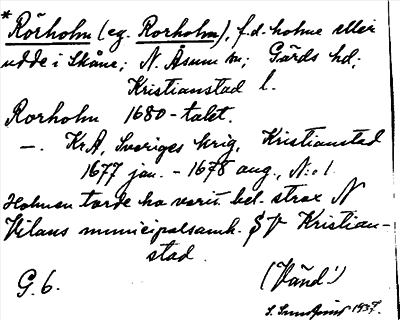 * Rörholm (eg. Rorholm), f.d. holme eller
udde i Skåne; N. Åsum sn; Gärds hd;
Kristianstad l.
Rorholm 1680-talet.
—. KrA, Sveriges krig, Kristianstad
1677 jan. - 1678 aug., N:o 1.
Holmen torde ha varit bel. strax N
Vilans municipalsamh. SV Kristian-
stad.
G. 6. (Vänd!)
S. Sundqvist 1937.